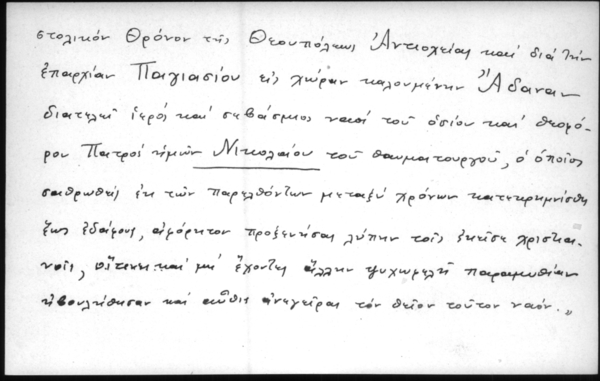 στολικὸν Θρόνον τῆς Θεουπόλεως Ἀντιοχείας καὶ διὰ τὴν
ἐπαρχίαν Παγιασίου εἰς χώραν καλουμένην "Ἄδαναν
διατελεῖ ἱερὸς καὶ σεβάσμιος ναὸς τοῦ ὁσίου καὶ θεοφό-
ρου Πατρὸς ἡμῶν Νικολαίου τοῦ θαυματουργοῦ, ὁ ὁποῖος
σαθρωθεὶς ἐκ τῶν παρελθόντων μεταξὺ χρόνων κατεκρημνίσθη
ἕως ἐδάφους, ἀφόρητον προξενήσας λύπην τοῖς ἐκεῖσε χριστια-
νοῖς, οἵτινες καὶ μὴ ἔχοντες ἄλλην ψυχωφελῆ παραμυθίαν
ἠβουλήθησαν καὶ αὖθις ἀνεγεῖραι τὸν θεῖον τοῦτον ναόν."